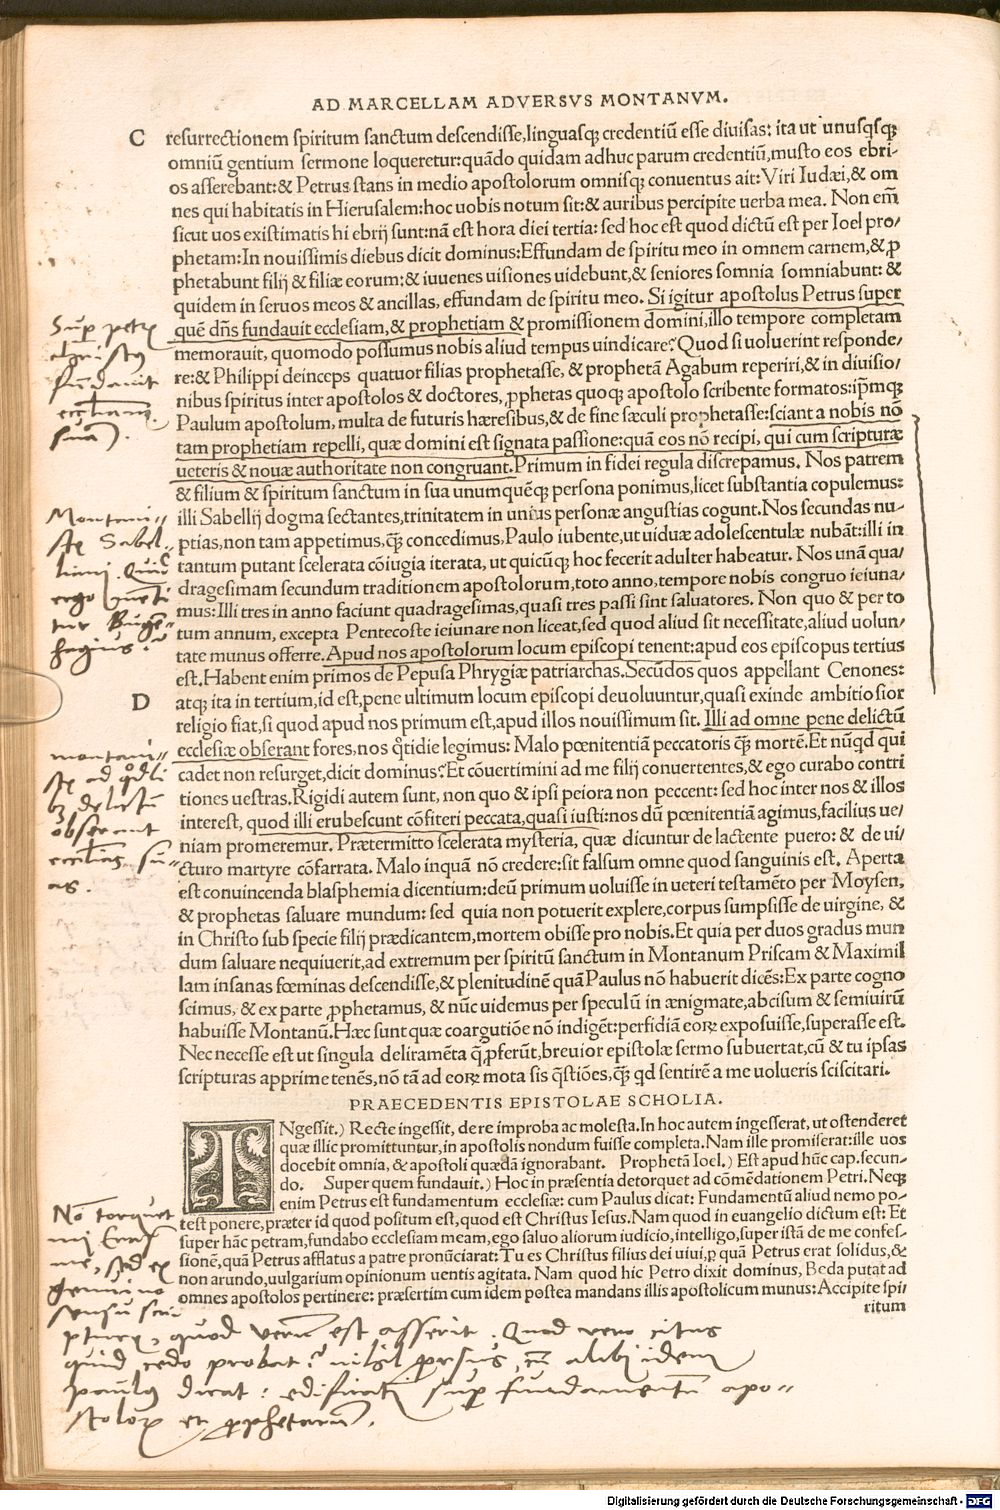 AD MARCELLAM ADVERSVS MONTANVM.
C resurrectionem spiritum sanctum descendisse,linguasqꝫ credentiū esse diuisas: ita ut unusqsqꝫ
omniū gentium sermone loqueretur:quādo quidam adhuc parum credentiū,musto eos ebri-
os asserebant:& Petrus stans in medio apostolorum omnisqꝫ conuentus ait: Viri Iudæi,& om
nes qui habitatis in Hierusalem:hoc uobis notum sit:& auribus percipite uerba mea. Non em̄
sicut uos existimatis hi ebrij sunt:nā est hora diei tertia: sed hoc est quod dictū est per Ioel pro/
phetam:In nouissimis diebus dicit dominus:Effundam de spiritu meo in omnem carnem,& ꝓ
phetabunt filij & filiæ eorum:& iuuenes uisiones uidebunt,& seniores somnia somniabunt: &
quidem in seruos meos & ancillas, effundam de spiritu meo. Si igitur apostolus Petrus super
quē dn̄s fundauit ecclesiam,& prophetiam & promissionem domini,illo tempore completam
memorauit, quomodo possumus nobis aliud tempus uindicare? Quod si uoluerint responde/
re:& Philippi deinceps quatuor filias prophetasse, & prophetā Agabum reperiri,& in diuisio/
nibus spiritus inter apostolos & doctores, ꝓphetas quoqꝫ apostolo scribente formatos:ip̄mqꝫ
Paulum apostolum, multa de futuris hæresibus,& de fine sæculi prophetasse:sciant a nobis nō
tam prophetiam repelli, quæ domini est signata passione:quā eos nō recipi, qui cum scripturæ
ueteris & nouæ authoritate non congruant.Primum in fidei regula discrepamus. Nos patrem
& filium & spiritum sanctum in sua unumquēqꝫ persona ponimus,licet substantia copulemus:
illi Sabellij dogma sectantes,trinitatem in unius personæ angustias cogunt.Nos secundas nu-
ptias,non tam appetimus,q̄ꝫ concedimus,Paulo iubente,ut uiduæ adolescentulæ nubāt:illi in
tantum putant scelerata cōiugia iterata, ut quicūqꝫ hoc fecerit adulter habeatur. Nos unā qua/
dragesimam secundum traditionem apostolorum,toto anno,tempore nobis congruo ieiuna/
mus:Illi tres in anno faciunt quadragesimas,quasi tres passi sint saluatores. Non quo & per to
tum annum, excepta Pentecoste ieiunare non liceat,sed quod aliud sit necessitate,aliud uolun/
tate munus offerre.Apud nos apostolorum locum episcopi tenent:apud eos episcopus tertius
est.Habent enim primos de Pepusa Phrygiæ patriarchas.Secūdos quos appellant Cenones:
D atqꝫ ita in tertium,id est,pene ultimum locum episcopi deuoluuntur,quasi exinde ambitiosior
religio fiat,si quod apud nos primum est,apud illos nouissimum sit. Illi ad omne pene delictū
ecclesiæ obserant fores,nos q̄tidie legimus: Malo pœnitentiā peccatoris q̄ꝫ mortē.Et nūqd qui
cadet non resurget,dicit dominus?Et cōuertimini ad me filij conuertentes,& ego curabo contri
tiones uestras.Rigidi autem sunt, non quo & ipsi peiora non peccent: sed hoc inter nos & illos
interest, quod illi erubescunt cōfiteri peccata,quasi iusti:nos dū pœnitentiā agimus,facilius ue/
niam promeremur. Prætermitto scelerata mysteria, quæ dicuntur de lactente puero: & de ui/
cturo martyre cōfarrata. Malo inquā nō credere:sit falsum omne quod sanguinis est. Aperta
est conuincenda blasphemia dicentium:deū primum uoluisse in ueteri testamēto per Moysen,
& prophetas saluare mundum: sed quia non potuerit explere,corpus sumpsisse de uirgine, &
in Christo sub specie filij prædicantem,mortem obisse pro nobis.Et quia per duos gradus mun
dum saluare nequiuerit,ad extremum per spiritū sanctum in Montanum Priscam & Maximil
lam insanas fœminas descendisse,& plenitudinē quā Paulus nō habuerit dicēs:Ex parte cogno
scimus, & ex parte ꝓphetamus, & nūc uidemus per speculū in ænigmate,abcisum & semiuirū
habuisse Montanū.Hæc sunt quæ coargutiōe nō indigēt:perfidiā eoꝝ exposuisse,superasse est.
Nec necesse est ut singula deliramēta q̄ ꝓferūt,breuior epistolæ sermo subuertat,cū & tu ipsas
scripturas apprime tenēs,nō tā ad eoꝝ mota sis q̄stiōes,q̄ꝫ qd sentirē a me uolueris sciscitari.
PRAECEDENTIS EPISTOLAE SCHOLIA.
INgessit.) Recte ingessit, de re improba ac molesta.In hoc autem ingesserat, ut ostenderet
quæ illic promittuntur,in apostolis nondum fuisse completa.Nam ille promiserat:ille uos
docebit omnia,& apostoli quædā ignorabant. Prophetā Ioel.) Est apud hūc cap.secun-
do. Super quem fundauit.) Hoc in præsentia detorquet ad cōmēdationem Petri.Neqꝫ
enim Petrus est fundamentum ecclesiæ: cum Paulus dicat: Fundamentū aliud nemo po-
test ponere,præter id quod positum est,quod est Christus Iesus.Nam quod in euangelio dictum est: Et
super hāc petram,fundabo ecclesiam meam,ego saluo aliorum iudicio,intelligo,super istā de me confes-
sionē,quā Petrus afflatus a patre pronūciarat: Tu es Christus filius dei uiui,ꝑ quā Petrus erat solidus,&
non arundo,uulgarium opinionum uentis agitata. Nam quod hic Petro dixit dominus, Beda putat ad
omnes apostolos pertinere: præsertim cum idem postea mandans illis apostolicum munus:Accipite spi/
ritum
Sup petrū
christus
fundauit
eccliam
suā.
Montani-
stę Sabel-
liani. Quid
ergo
montani-
stę ad qdli
bꝫ delictū
obserant
ecclias su-
as.
Nō torquet
mi Eras
me, sed ex
genuino
sensu scri
pturę, quod verū est asserit. Quod vero citas
quid cedo probat? nihil prorsus, cū alibi idem
paulus dicat: edificati sup fundamentū apo-
stoloꝝ et prophetarū.
Digitalisierung gefördert durch die Deutsche Forschungsgemeinschaft - DFG